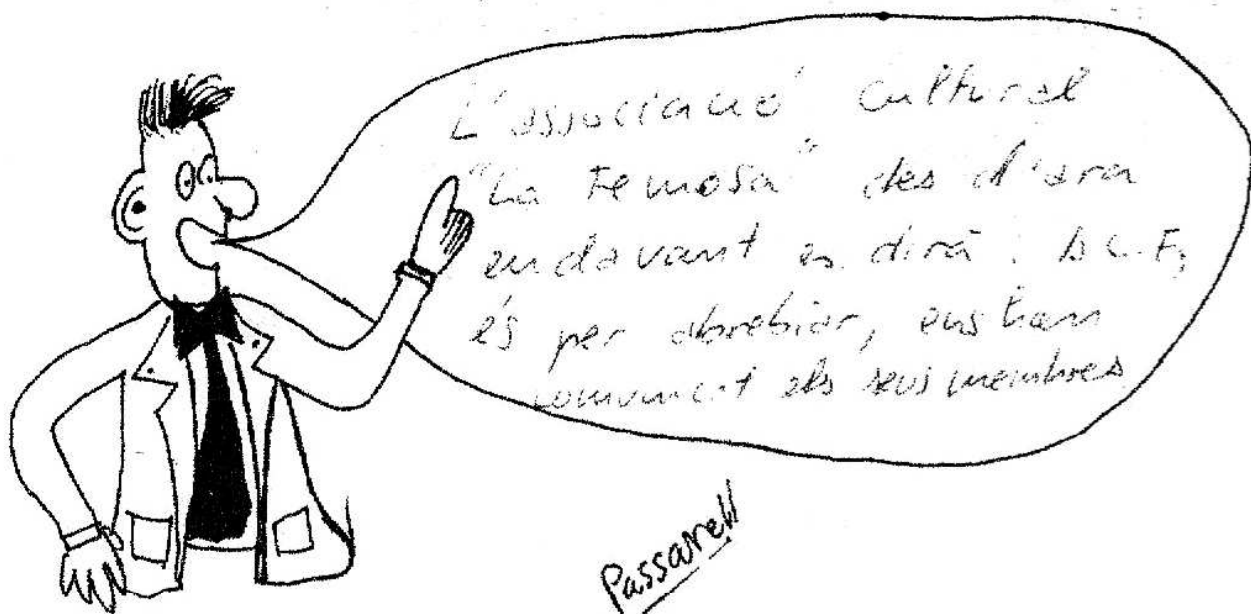 L'associació cultural
"La Femosa" des d'ara
endavant es dirà: A.C.F,
és per abrebiar, ens han
comunicat els seus membres
Passarell